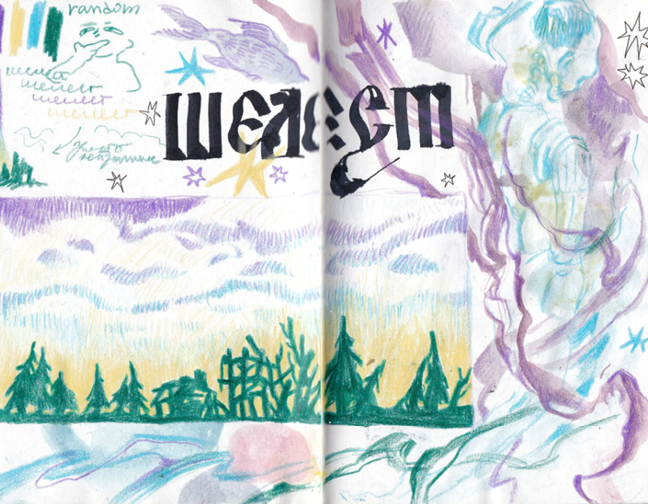 random
шелест
шелест
шелест
шелест
шелест